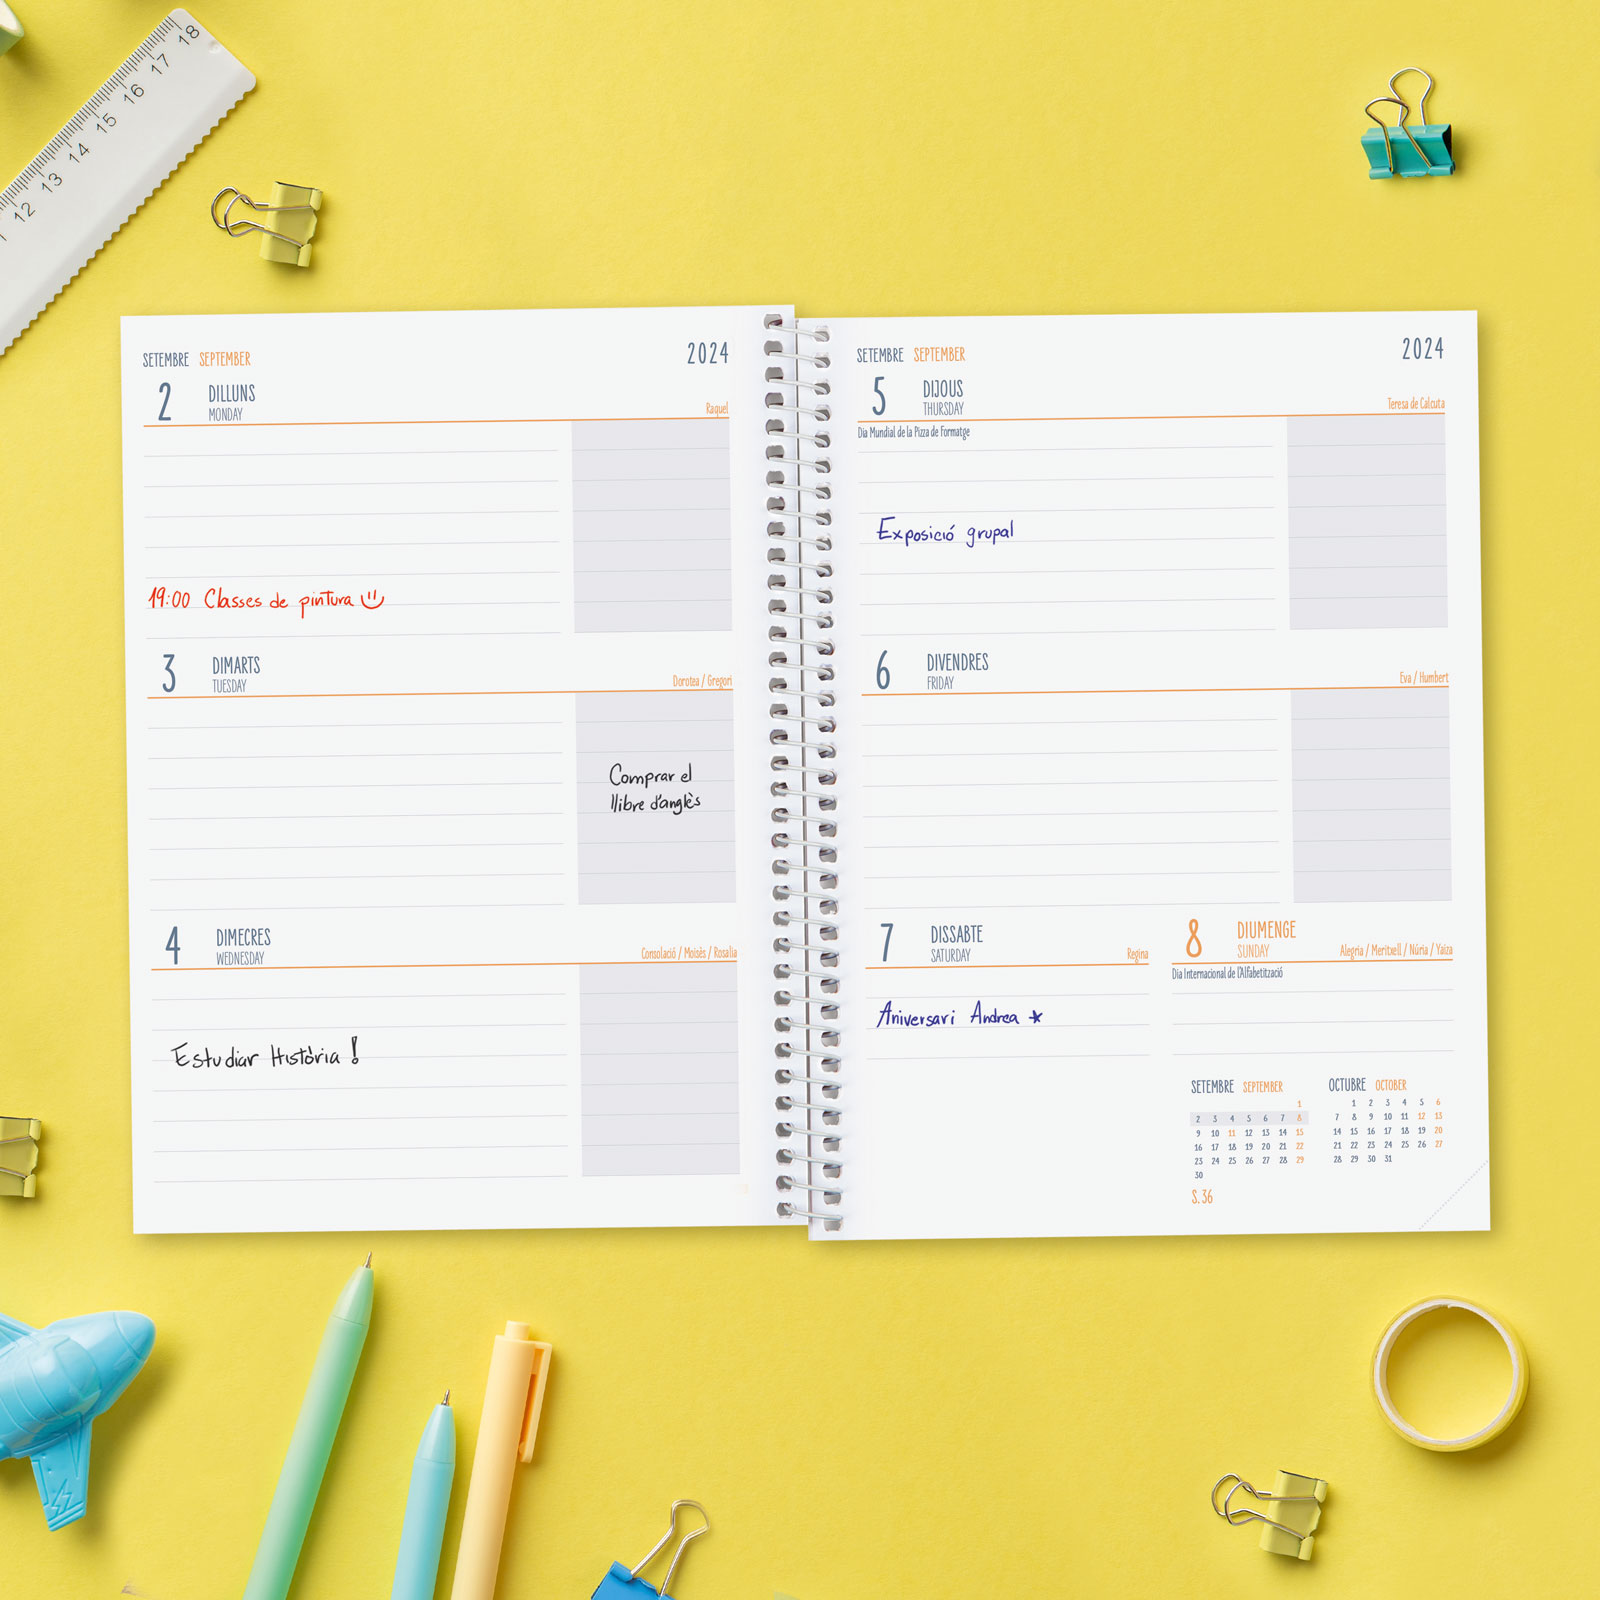 18
17
16
15
14
13
12
SETEMBRE SEPTEMBER 2024
2 DILLUNS
MONDAY Raquel
19:00 Classes de pintura
3 DIMARTS
TUESDAY Dorotea / Gregori
Comprar el
llibre d'anglès
4 DIMECRES
WEDNESDAY Consolació / Moisès / Rosalia
Estudiar Història !
SETEMBRE SEPTEMBER 2024
5 DIJOUS
THURSDAY Teresa de Calcuta
Dia Mundial de la Pizza de Formatge
Exposició grupal
6 DIVENDRES
FRIDAY Eva / Humbert
7 DISSABTE
SATURDAY Regina
Aniversari Andrea
8 DIUMENGE
SUNDAY Alegria / Meritxell / Núria / Yaiza
Dia Internacional de l'Alfabetització
SETEMBRE SEPTEMBER
1
2 3 4 5 6 7 8
9 10 11 12 13 14 15
16 17 18 19 20 21 22
23 24 25 26 27 28 29
30
S. 36
OCTUBRE OCTOBER
1 2 3 4 5 6
7 8 9 10 11 12 13
14 15 16 17 18 19 20
21 22 23 24 25 26 27
28 29 30 31